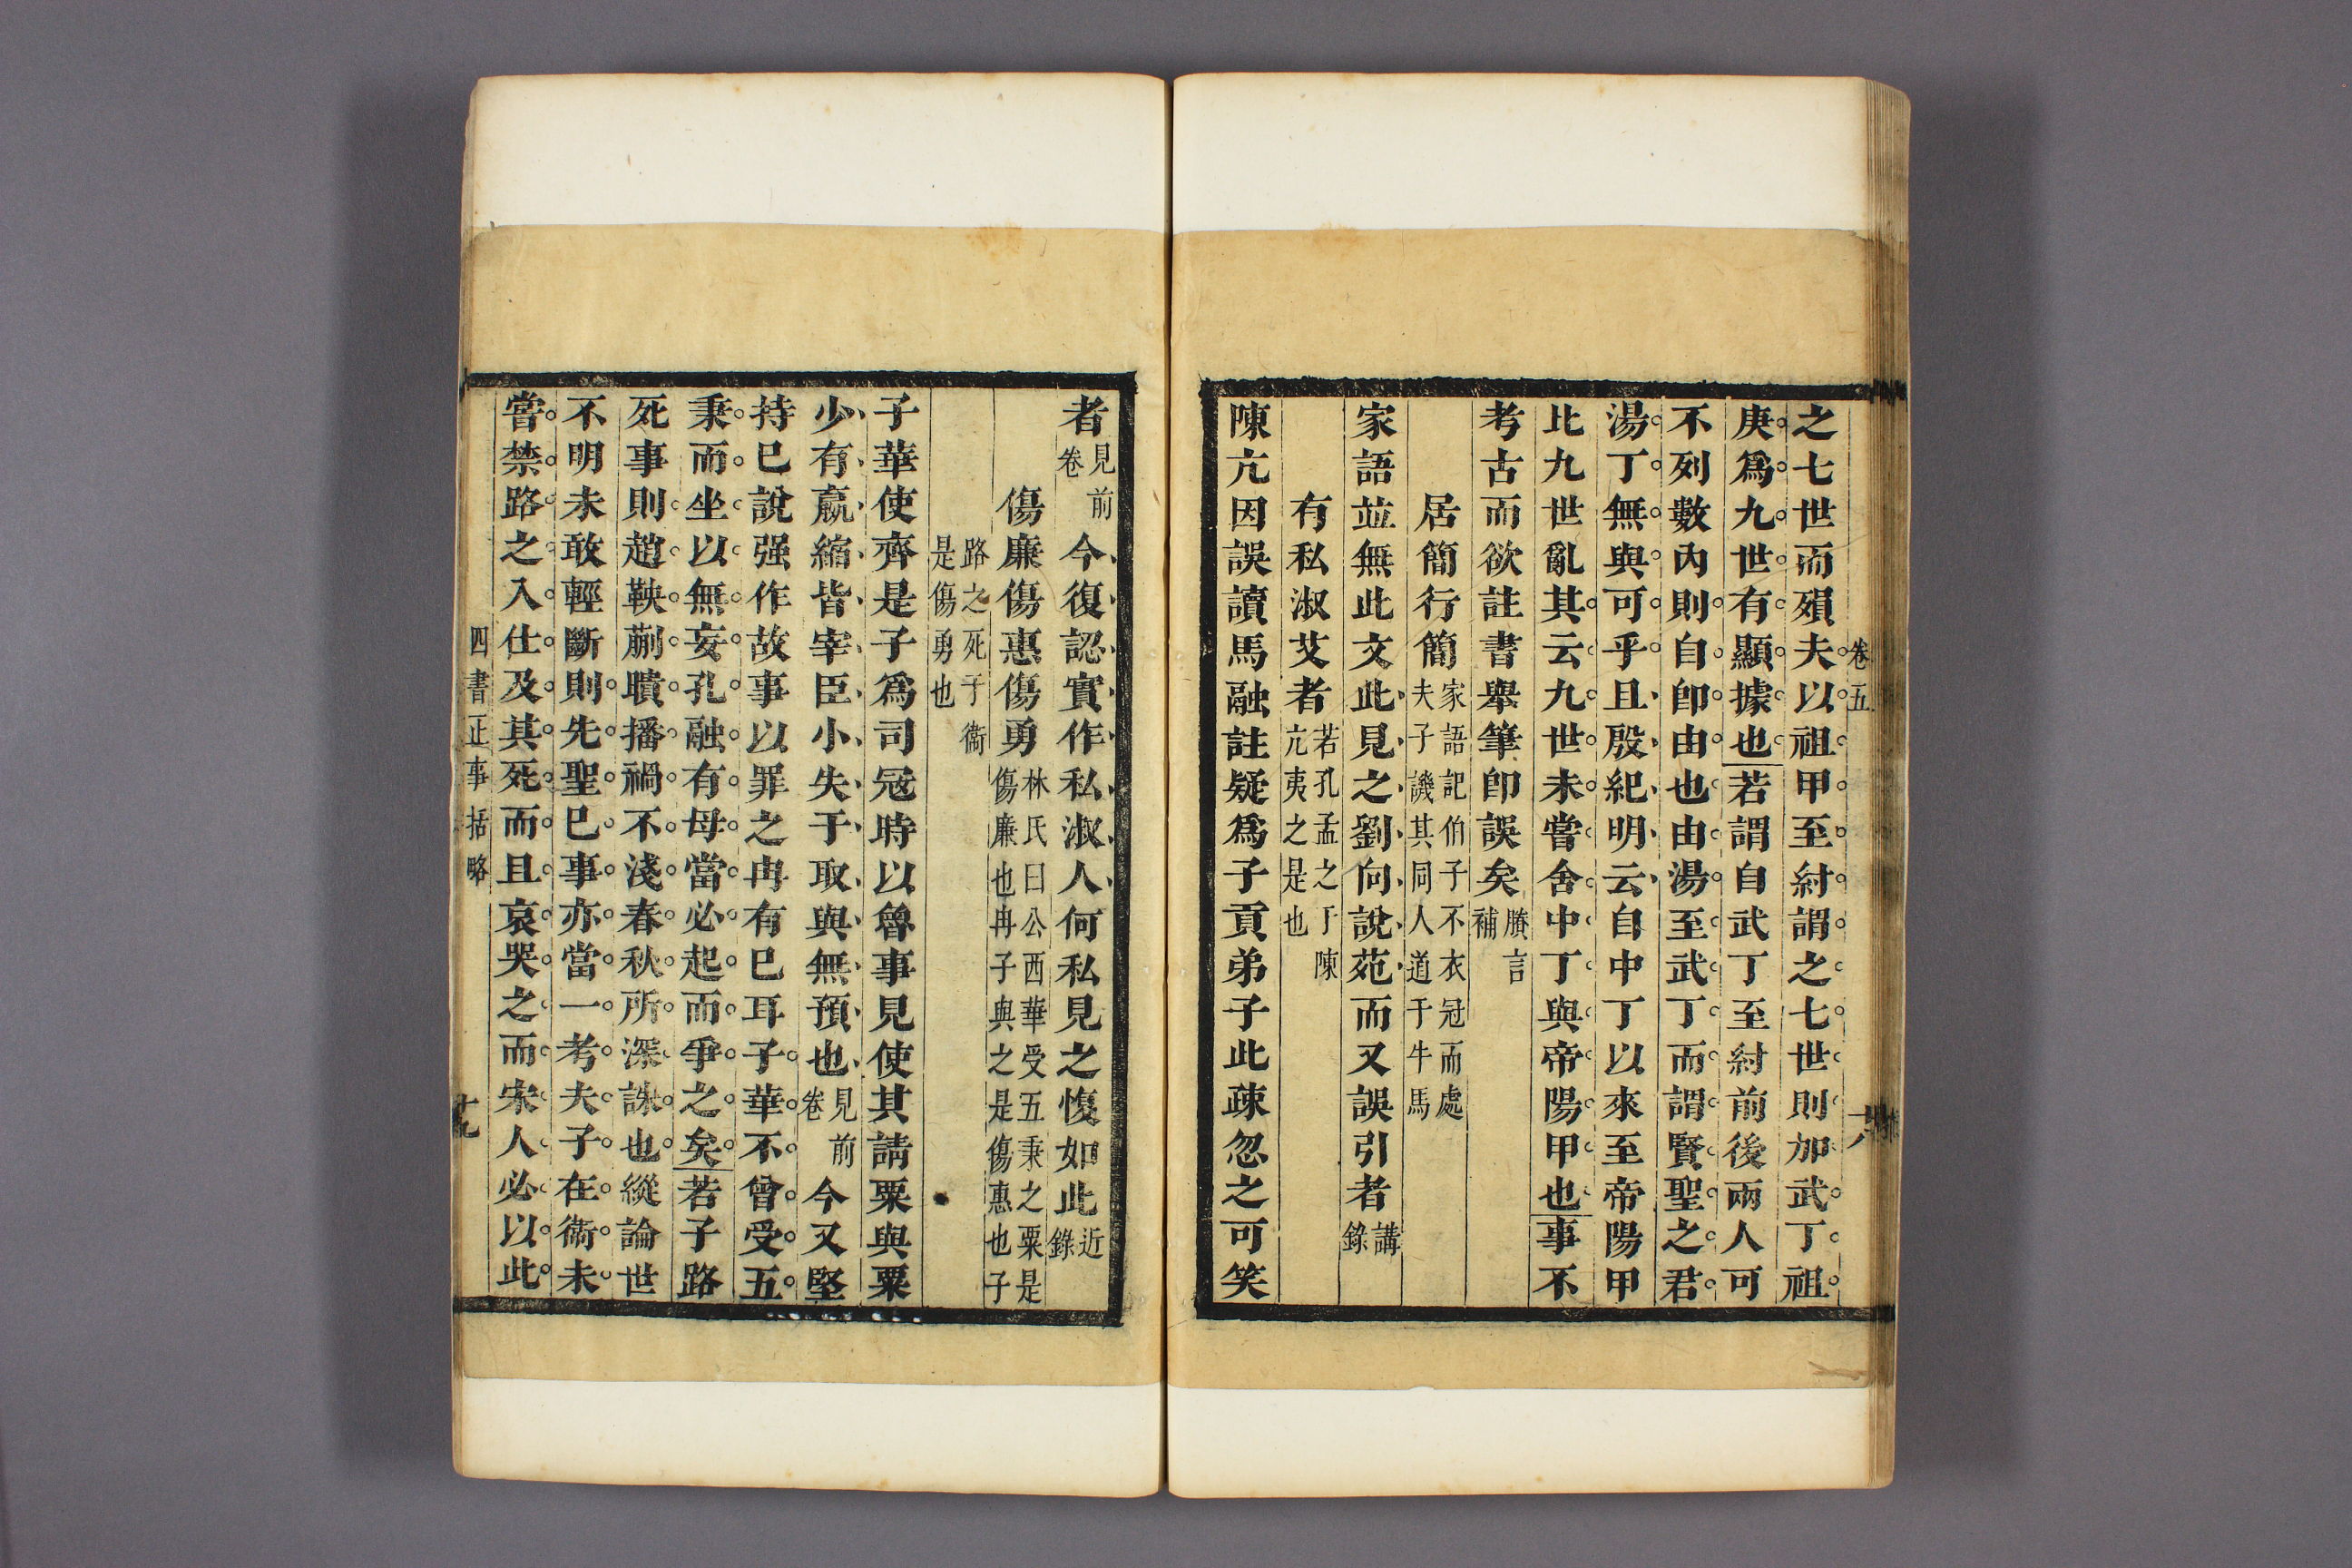 卷五
十八
之七世而殞夫以祖甲至紂謂之七世則加武丁祖
庚爲九世有顯據也若謂自武丁至紂前後兩人可
不列數內則自卽由也由湯至武丁而謂賢聖之君
湯丁無與可乎且殷紀明云自中丁以來至帝陽甲
比九世亂其云九世未嘗舍中丁與帝陽甲也事不
考古而欲註書舉筆卽誤矣賸言補
居簡行簡家語記伯子不衣冠而處夫子譏其同人道于牛馬
家語並無此文此見之劉向說苑而又誤引者講錄
有私淑艾者若孔孟之于陳亢夷之是也
陳亢因誤讀馬融註疑爲子貢弟子此疎忽之可笑
者見前卷今復認實作私淑人何私見之愎如此近錄
傷廉傷惠傷勇林氏曰公西華受五秉之粟是傷廉也冉子與之是傷惠也子
路之死于衞是傷勇也
子華使齊是子爲司寇時以魯事見使其請粟與粟
少有嬴縮皆宰臣小失于取與無預也見前卷今又堅
持已說强作故事以罪之冉有已耳子華不曾受五
秉而坐以無妄孔融有母當必起而爭之矣若子路
死事則趙鞅蒯聵播禍不淺春秋所深誅也縱論世
不明未敢輕斷則先聖已事亦當一考夫子在衞未
嘗禁路之入仕及其死而且哀哭之而宋人必以此
四書正事括略
十九